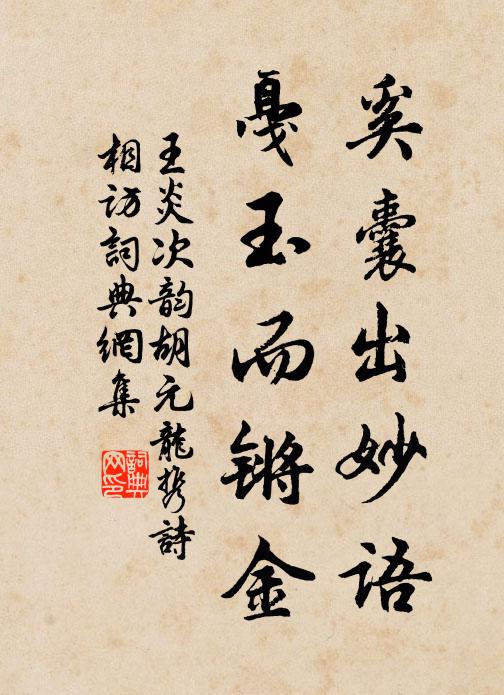 奚囊出妙语
戛玉而锵金
王炎次韵胡元龍携詩
相访詞典網集
詞典网印